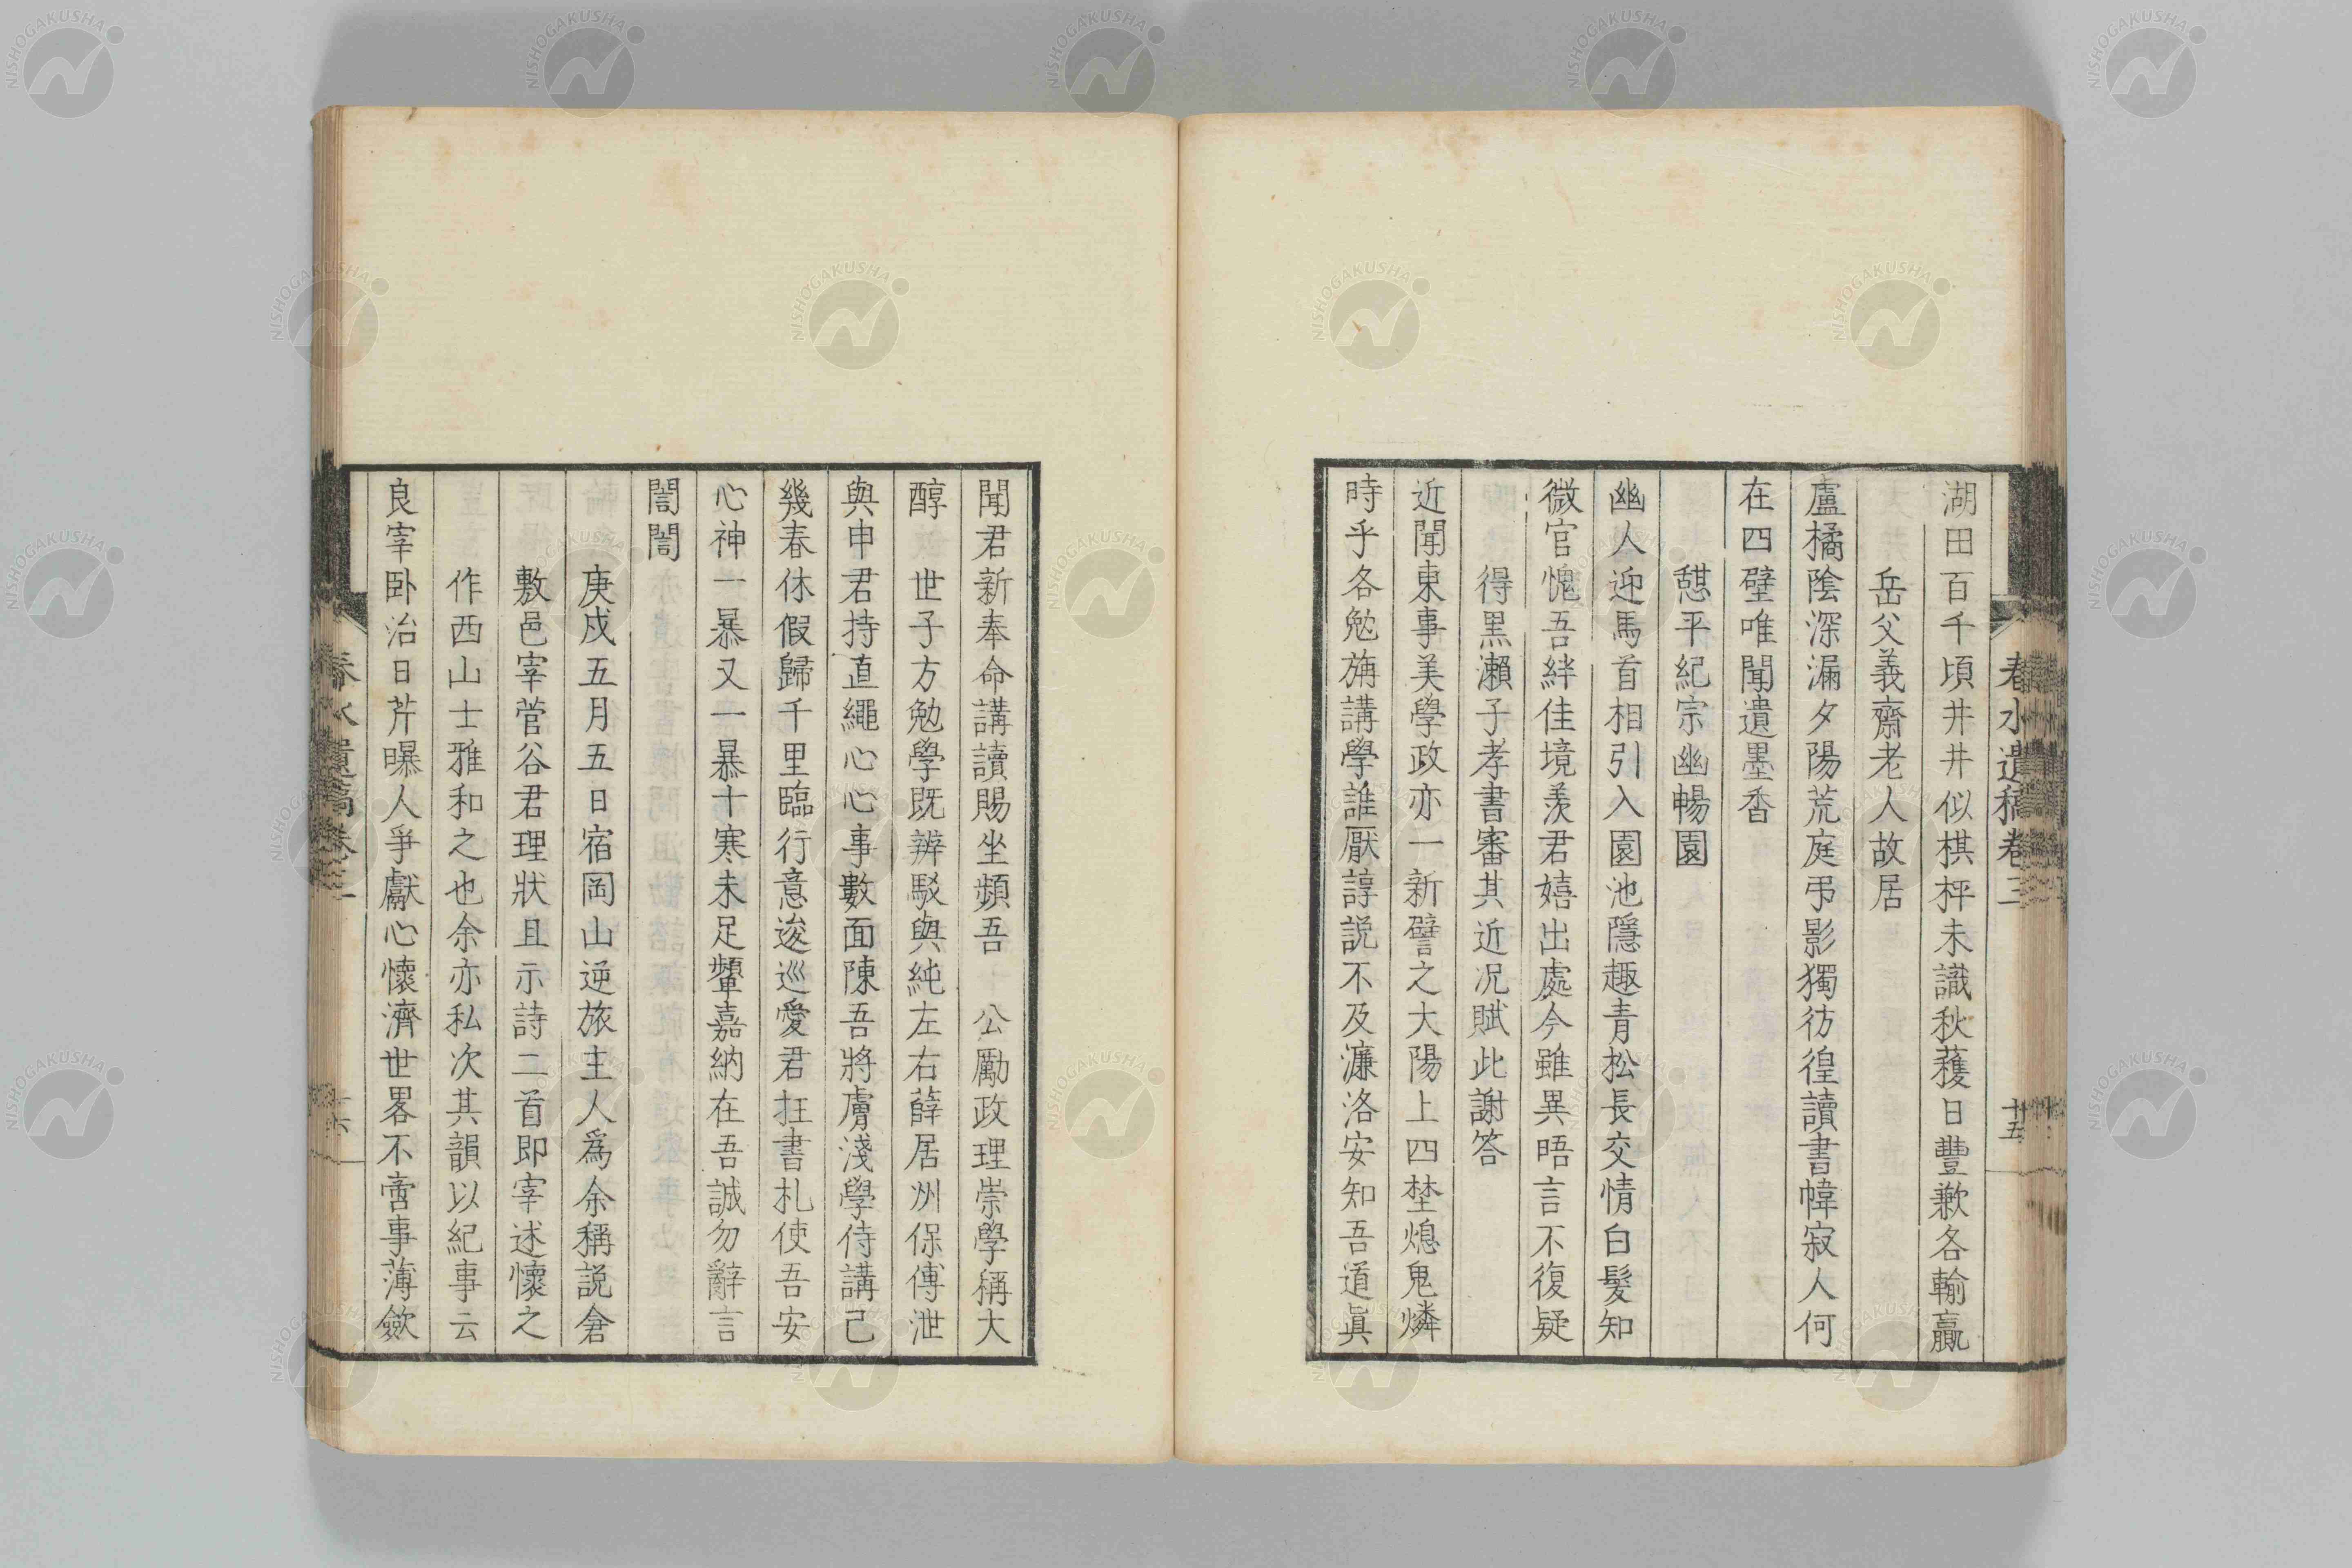 春水遺稿卷三
十五
湖田百千頃井井似棋枰未識秋穫日豐歉各輸贏
岳父義齋老人故居
盧橘陰深漏夕陽荒庭弔影獨彷徨讀書幃寂人何
在四壁唯聞遺墨香
憇平紀宗幽暢園
幽人迎馬首相引入園池隱趣青松長交情白髮知
微官愧吾絆佳境羨君嬉出處今雖異晤言不復疑
得黒瀬子孝書審其近况賦此謝答
近聞東事美學政亦一新譬之大陽上四埜熄鬼燐
時乎各勉旃講學誰厭諄説不及濂洛安知吾道眞
聞君新奉命講讀賜坐頻吾 公勵政理崇學稱大
醇 世子方勉學既辨駁與純左右薛居州保傅泄
與申君持直繩心心事數面陳吾將膚淺學侍講己
幾春休假歸千里臨行意逡巡愛君抂書札使吾安
心神一暴又一暴十寒未足顰嘉納在吾誠勿辭言
誾誾
庚戍五月五日宿岡山逆旅主人爲余稱説倉
敷邑宰菅谷君理狀且示詩二首即宰述懷之
作西山士雅和之也余亦私次其韻以紀事云
良宰卧治日芹曝人爭獻心懷濟世畧不啻事薄斂
春水遺稿卷三